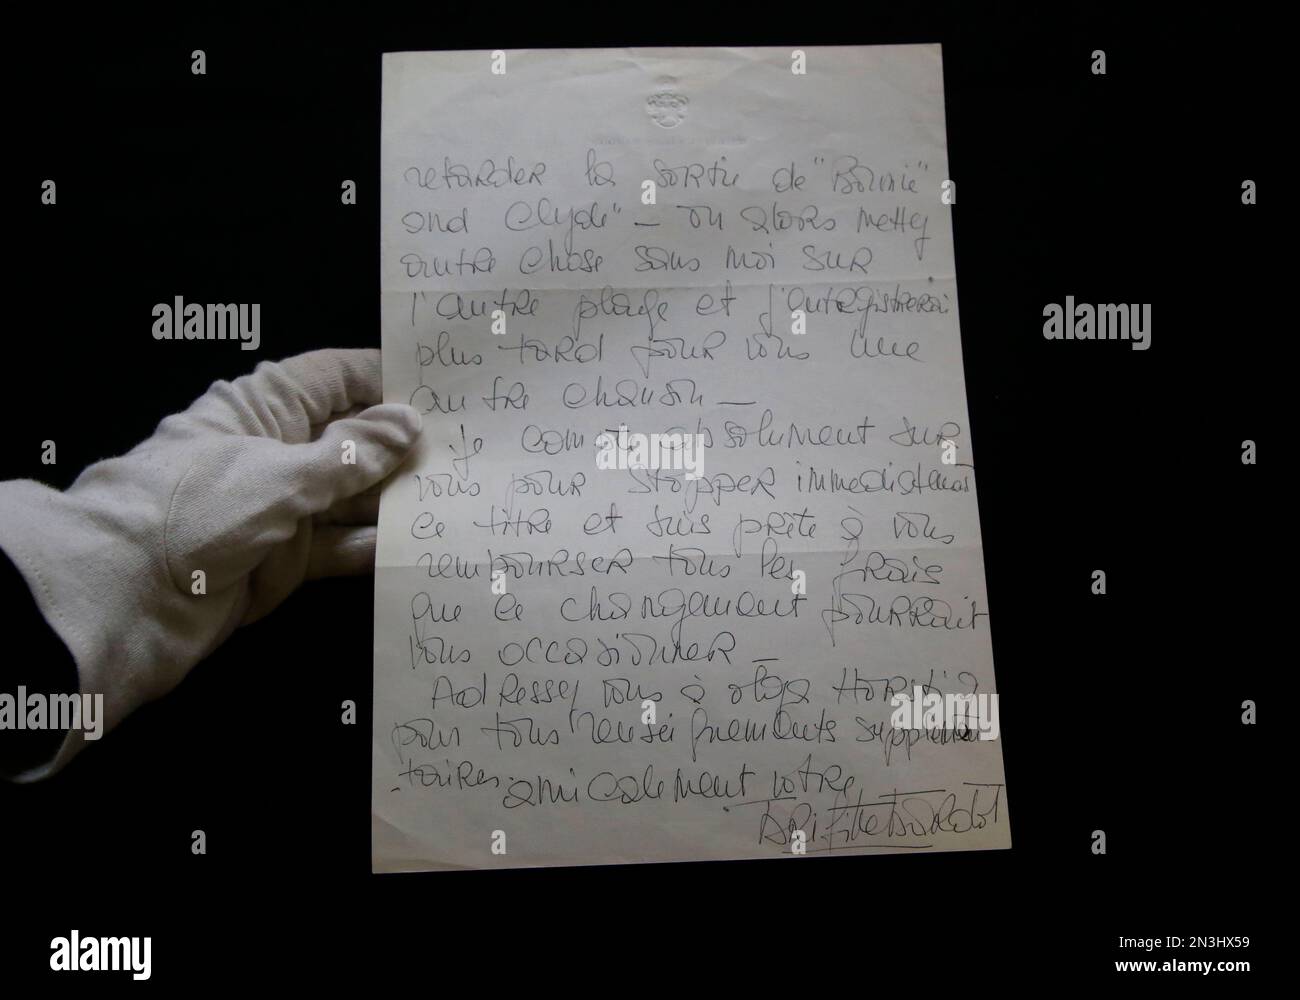 retarder la sortie de "Bonnie"
and Clyde" — ou alors mettez
autre chose sans moi sur
l'autre plage et j'enregistrerai
plus tard pour vous une
autre chanson —
Je compte absolument sur
vous pour stopper immédiatement
ce titre et suis prête à vous
rembourser tous les frais
que ce changement pourrait
vous occasionner —
Adressez vous à olga Horstig
pour tous renseignements supplémen-
taires. amicalement votre
Brigitte Bardot
a
alamy
alamy
Image ID: 2N3HX59
www.alamy.com